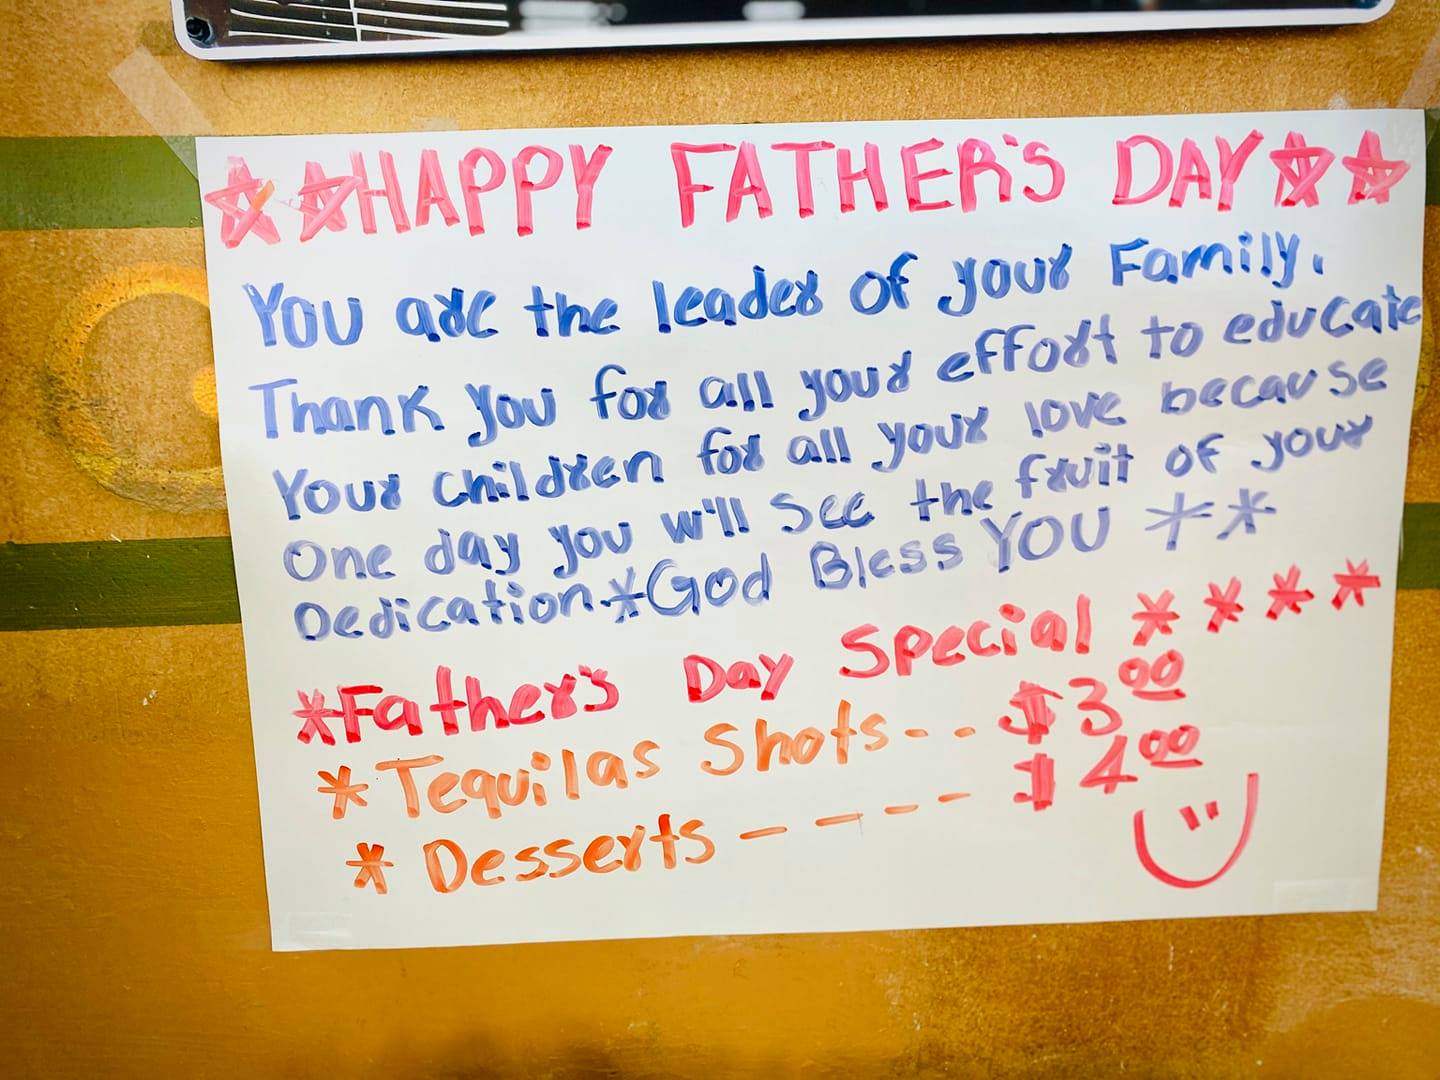 ☆☆HAPPY FATHER'S DAY☆☆
You are the leader of your Family.
Thank you for all your effort to educate
Your children for all your love because
One day you will see the fruit of your
Dedication.*God Bless YOU **
*Father's Day Special ****
*Tequilas Shots-- $3.00
*Desserts ---- $4.00